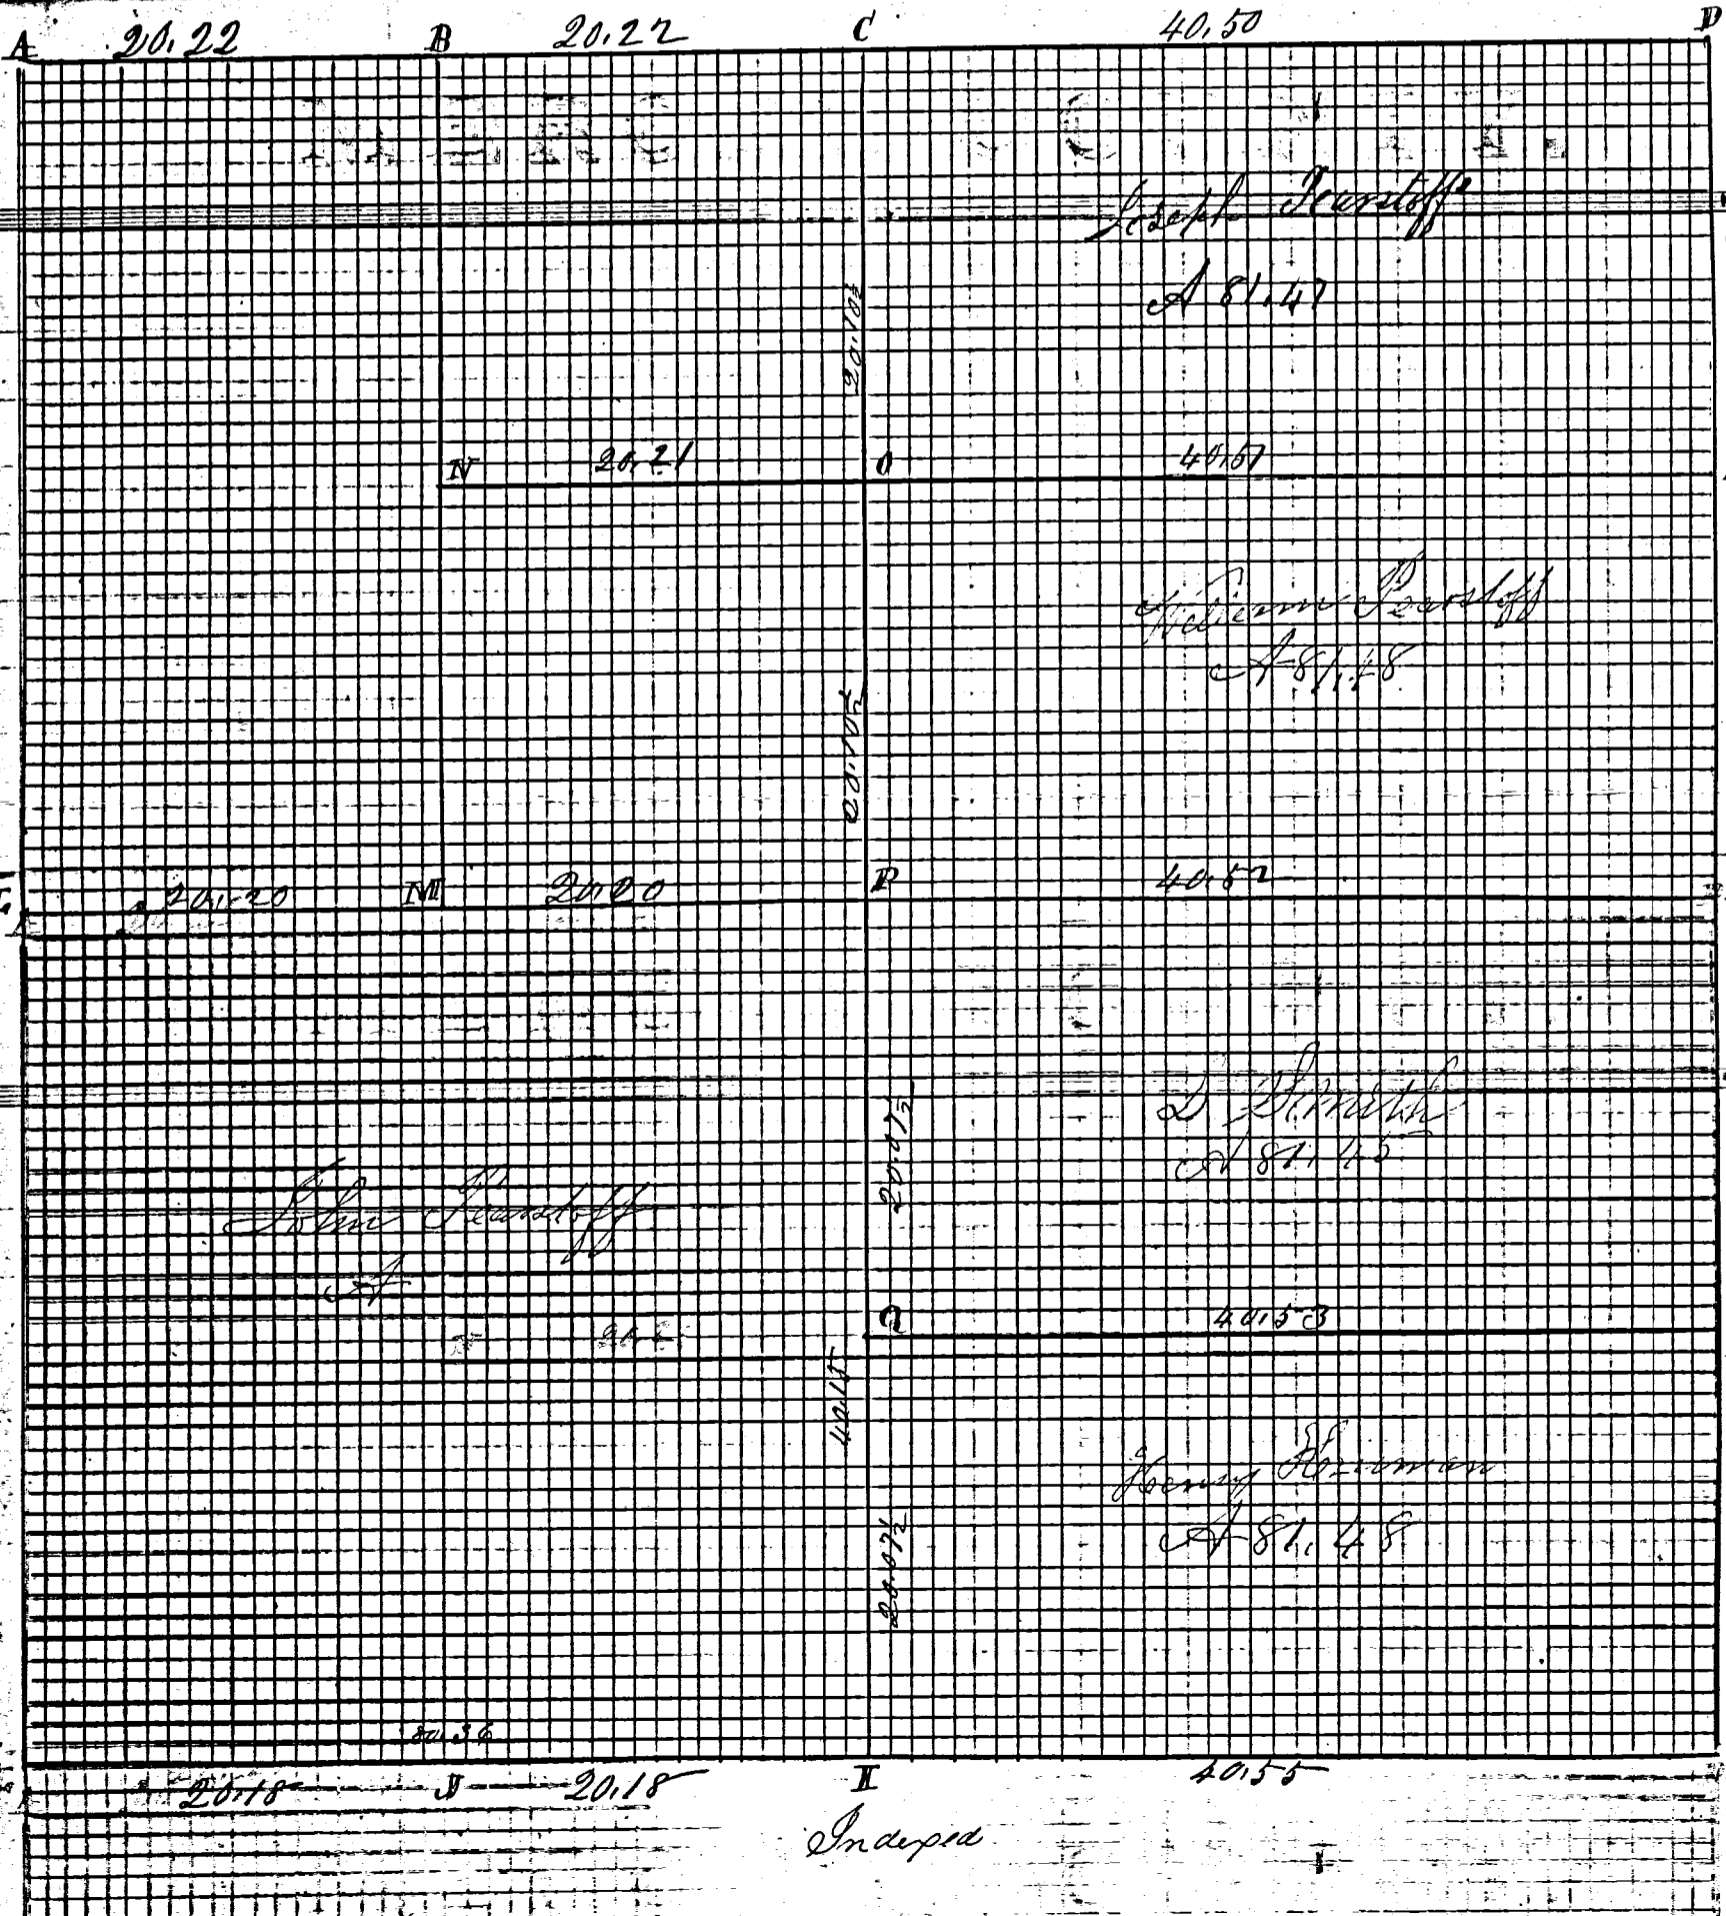 A 20.22 B 20.22 C 40.50 D
Joseph Pearstoff
A 81.47
20.10½
N 20.21 O 40.51
William Pearstoff
A 81.48
20.10½
20.20 M 20.20 P 40.52
D Smith
A 81.45
20.07½
John Pearstoff
A
Q 40.53
40.15
Henry
A 81.48
20.07½
80.36
20.18 J 20.18 I 40.55
Indexed